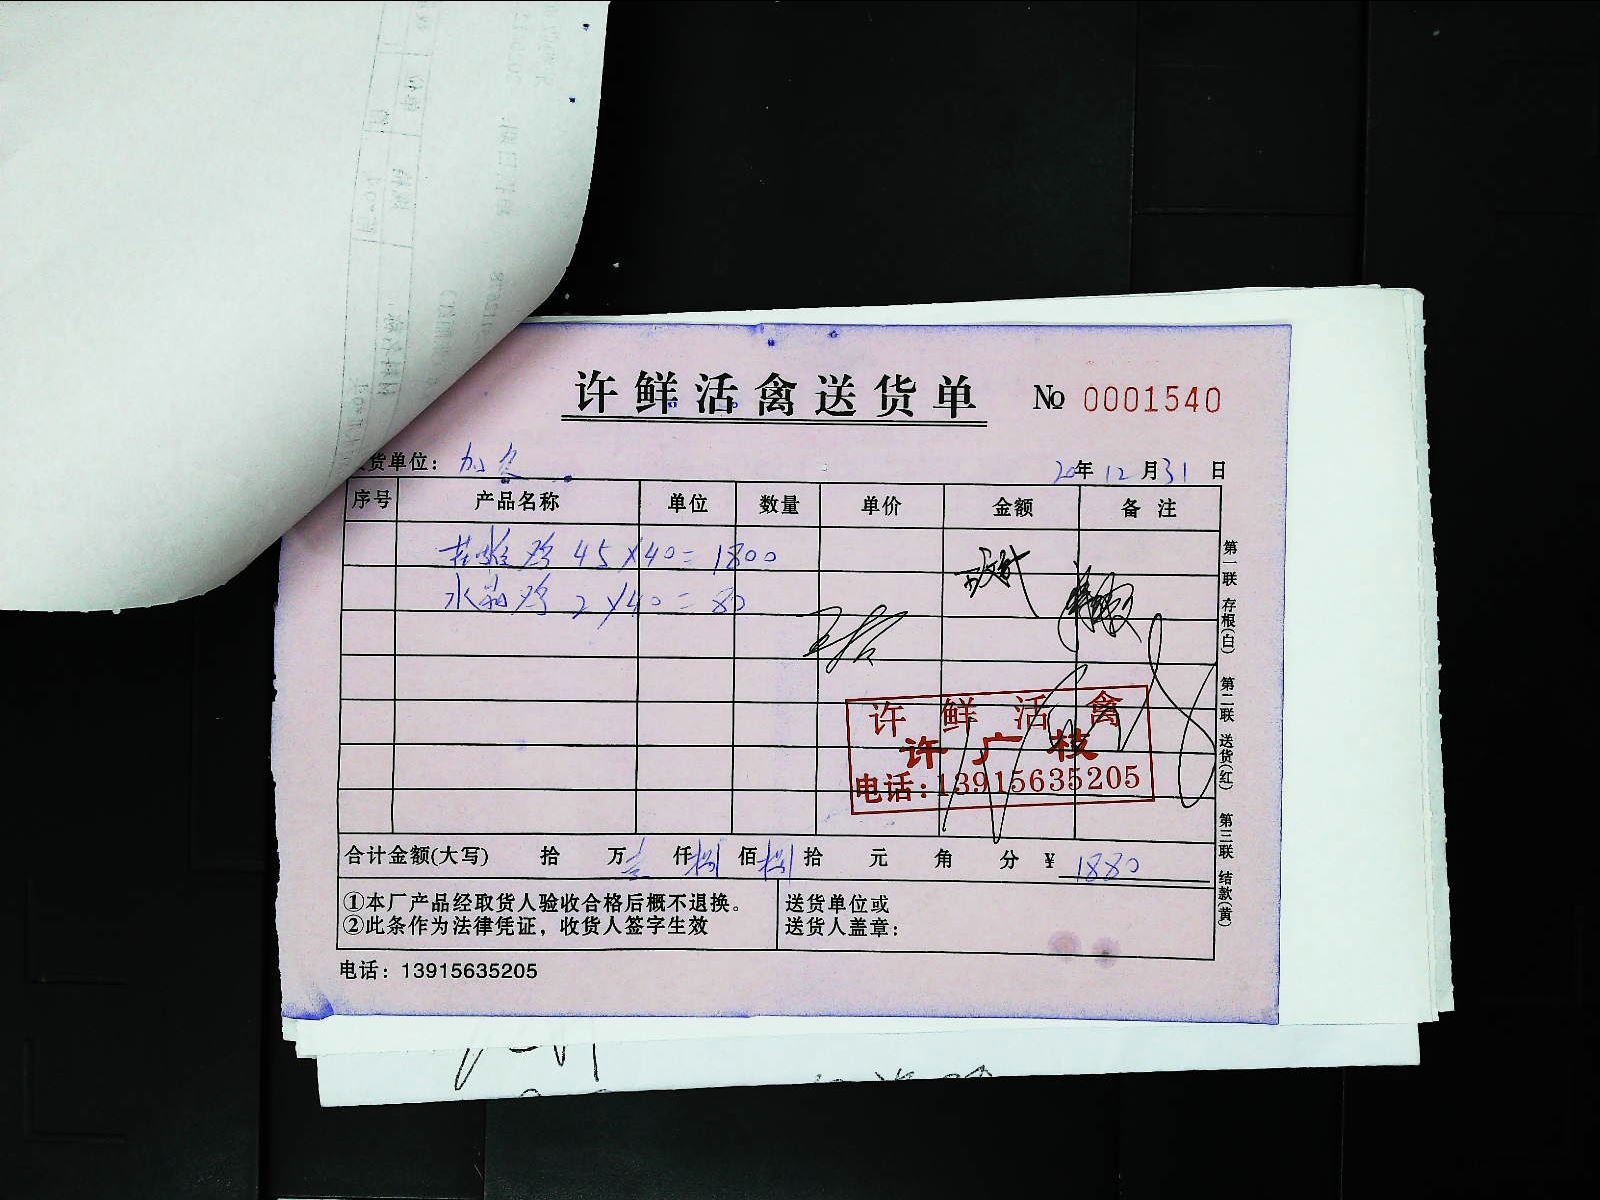 许鲜活禽送货单 № 0001540
货单位: 20年12月31日
序号 产品名称 单位 数量 单价 金额 备 注
鸡 45×40=1800
水 鸡 2×40=80
许 鲜 活 禽
许 广 枝
电话:13915635205
合计金额(大写) 拾 万壹仟捌佰捌拾 元 角 分 ¥ 1880
①本厂产品经取货人验收合格后概不退换。
②此条作为法律凭证,收货人签字生效
送货单位或
送货人盖章:
电话:13915635205
第一联 存根(白) 第二联 送货(红) 第三联 结款(黄)